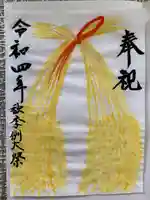 奉祝
令和四年
秋季例大祭